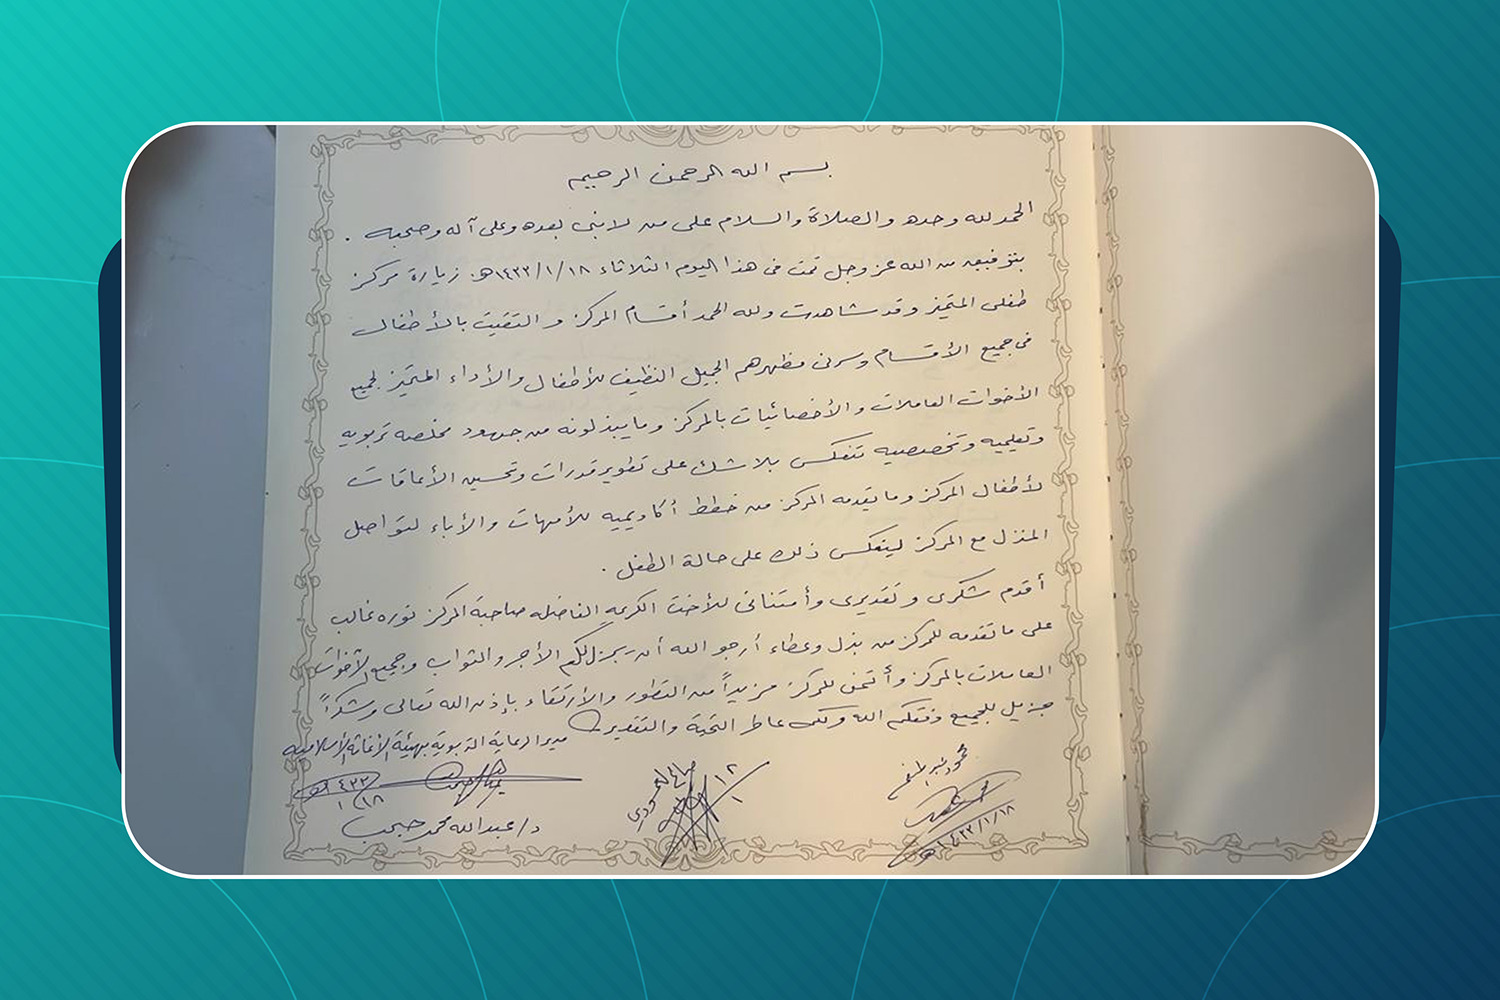 بسم الله الرحمن الرحيم
الحمد لله وحده والصلاة والسلام على من لا نبي بعده وعلى آله وصحبه .
بتوفيق من الله عز وجل تمت في هذا اليوم الثلاثاء ١٤٣٣/١/١٨هـ زيارة مركز
طفلي المتميز وقد شاهدت ولله الحمد أقسام المركز و التقيت بالأطفال
في جميع الأقسام وسرني مظهرهم الجميل النظيف للأطفال والأداء المتميز لجميع
الأخوات العاملات والأخصائيات بالمركز وما يبذلونه من جهود مخلصه تربويه
وتعليميه وتخصصيه تنعكس بلا شك على تطوير قدرات وتحسين الأعاقات
لأطفال المركز وما يقدمه المركز من خطط أكاديميه للأمهات والأباء لتواصل
المنزل مع المركز لينعكس ذلك على حالة الطفل .
أقدم شكري وتقديري وأمتناني للأخت الكريمه الفاضله صاحبة المركز نوره غالب
على ما تقدمه للمركز من بذل وعطاء أرجو الله أن يجزل لكم الأجر والثواب وجميع الأخوات
العاملات بالمركز وأتمنى للمركز مزيداً من التطور والأرتقاء بإذن الله تعالى وشكراً
جزيل للجميع وفقكم الله ولكم عاطر التحية والتقدير
مدير الرعاية التربوية بهيئة الأغاثة الأسلاميه
١٤٣٣هـ
١/١٨
د/عبدالله محمد
محمود
١٤٣٣/١/١٨هـ